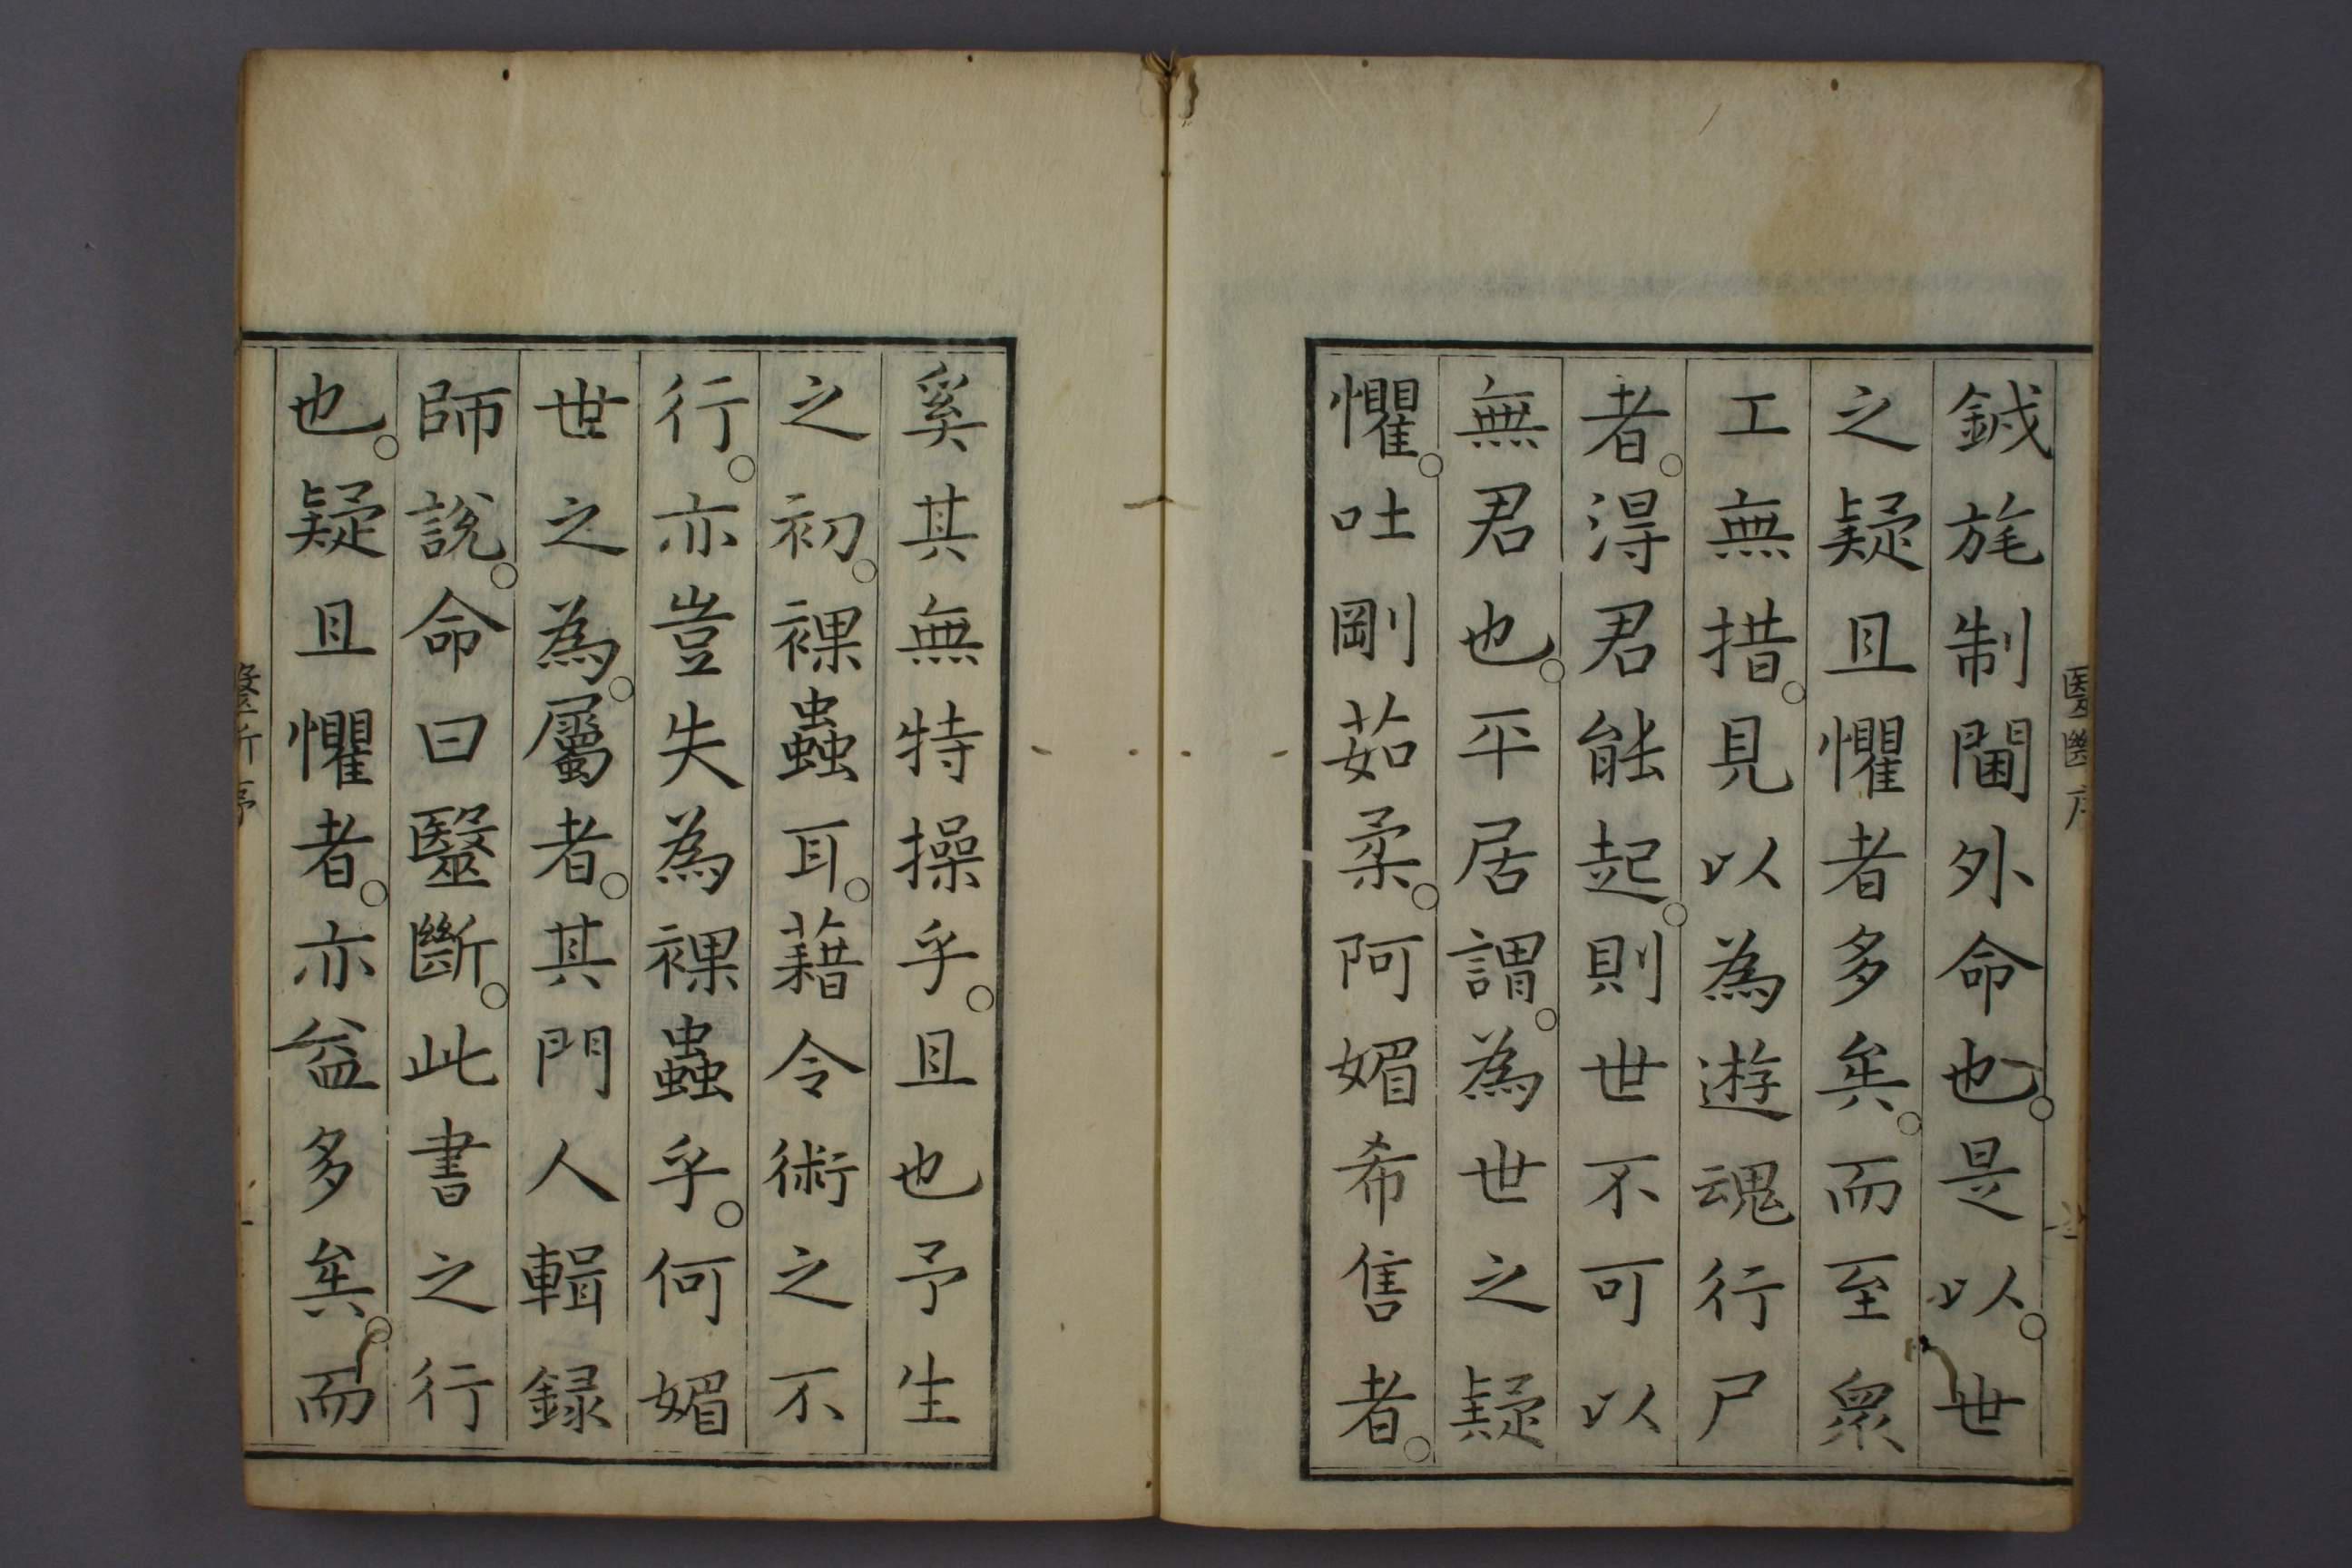 醫斷序
鉞旄制閫外命也。是以。世
之疑且懼者多矣。而至衆
工無措。見以為遊魂行尸
者。得君能起。則世不可以
無君也。平居謂。為世之疑
懼。吐剛茹柔。阿媚希售者。
奚其無特操乎。且也予生
之初。裸蟲耳。藉令術之不
行。亦豈失為裸蟲乎。何媚
世之為。屬者。其門人輯録
師說。命曰醫斷。此書之行
也。疑且懼者。亦益多矣。而
醫斷序